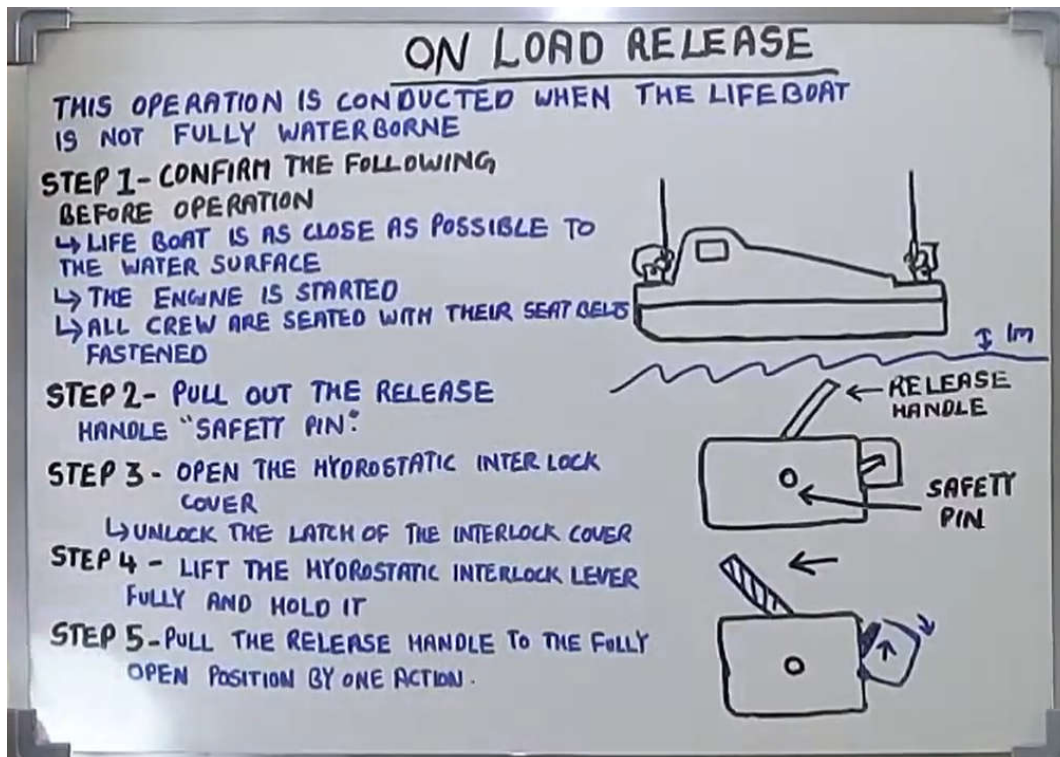 ON LOAD RELEASE
THIS OPERATION IS CONDUCTED WHEN THE LIFEBOAT
IS NOT FULLY WATERBORNE
STEP 1- CONFIRM THE FOLLOWING
BEFORE OPERATION
↳ LIFE BOAT IS AS CLOSE AS POSSIBLE TO
THE WATER SURFACE
↳ THE ENGINE IS STARTED
↳ ALL CREW ARE SEATED WITH THEIR SEAT BELTS
FASTENED
1m
STEP 2- PULL OUT THE RELEASE
HANDLE "SAFETY PIN".
← RELEASE
HANDLE
STEP 3 - OPEN THE HYDROSTATIC INTER LOCK
COVER
↳ UNLOCK THE LATCH OF THE INTERLOCK COVER
SAFETY
PIN
STEP 4 - LIFT THE HYDROSTATIC INTERLOCK LEVER
FULLY AND HOLD IT
STEP 5 - PULL THE RELEASE HANDLE TO THE FULLY
OPEN POSITION BY ONE ACTION.